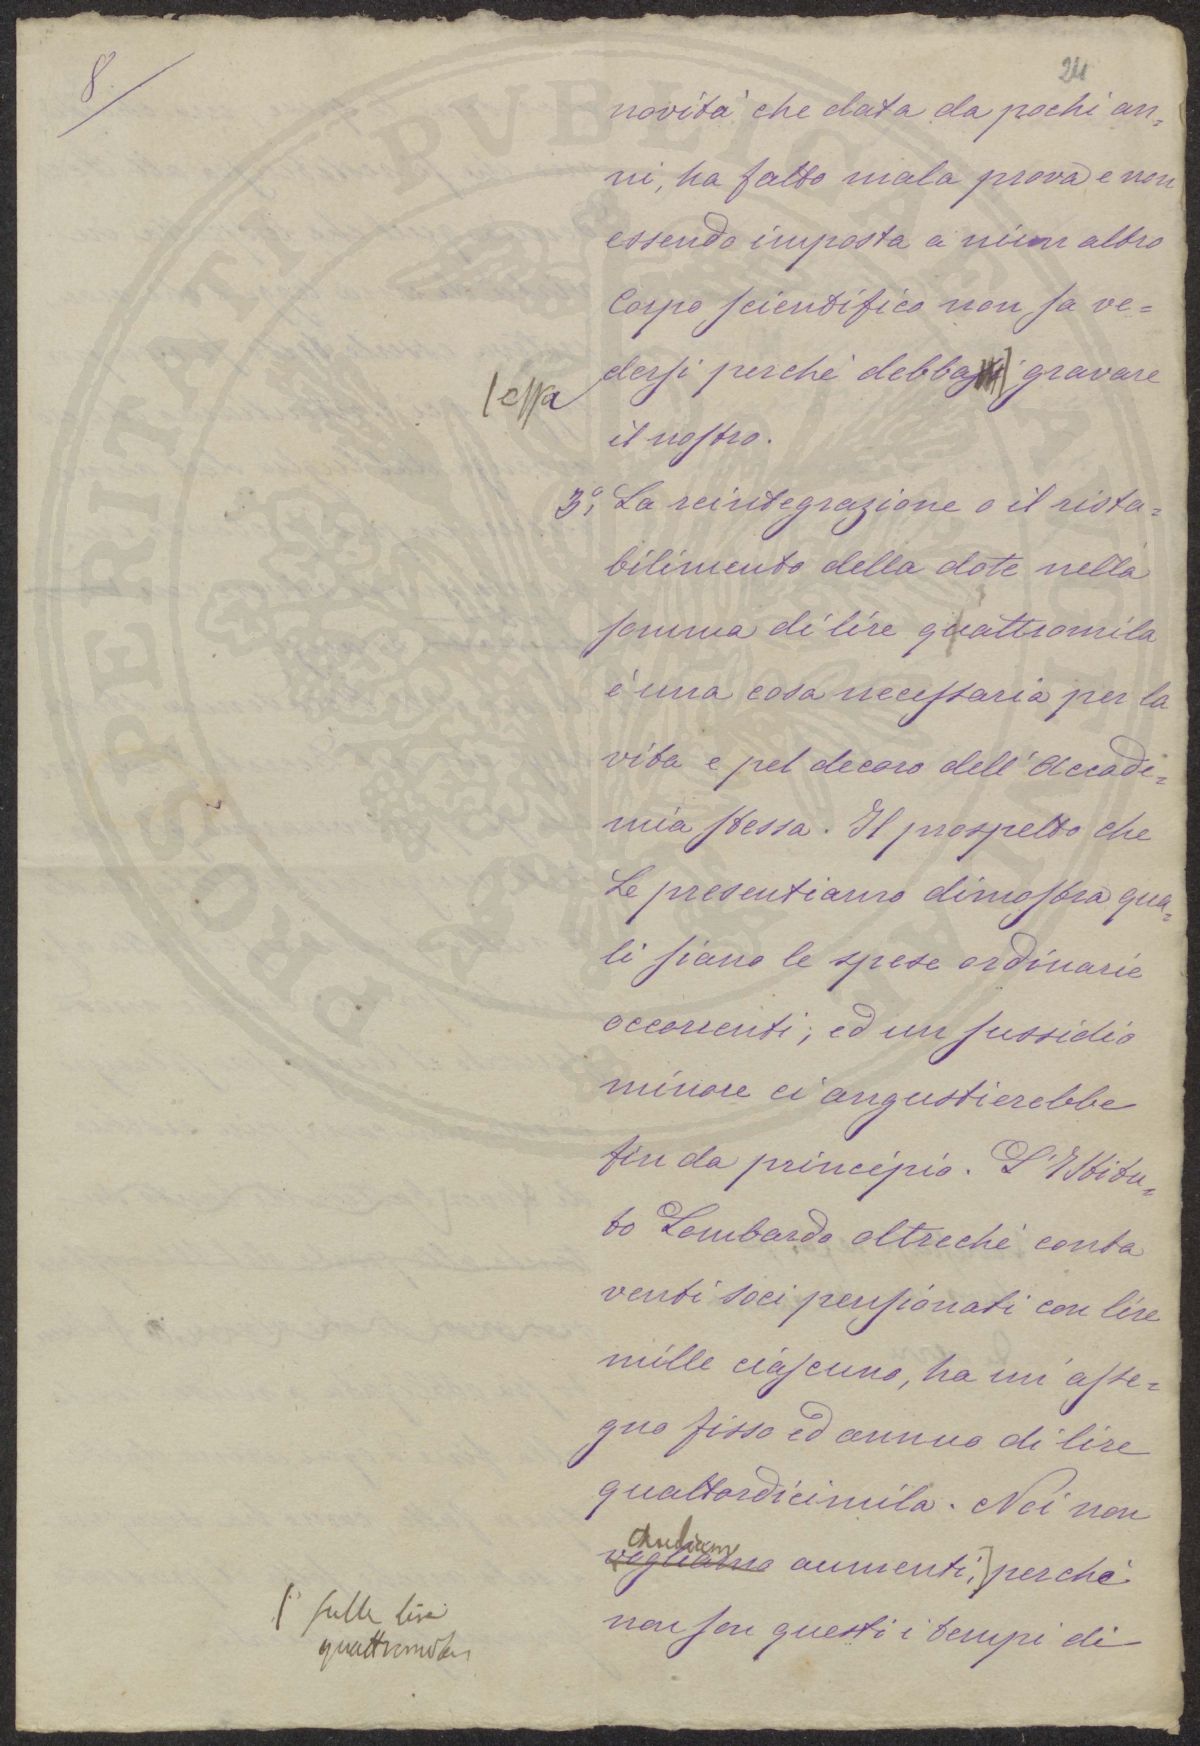 8
24
novità che data da pochi an=
ni, ha fatto mala prova e non
essendo imposta a niun altro
Corpo scientifico non sa ve=
dersi perchè debba gravare
essa
il nostro.
3º, La reintegrazione o il rista=
bilimento della dote nella
somma di lire quattromila
è una cosa necessaria per la
vita e pel decoro dell'Accade=
mia stessa. Il prospetto che
Le presentiamo dimostra qua=
li siano le spese ordinarie
occorrenti; ed un sussidio
minore ci angustierebbe
fin da principio. L'Istitu=
to Lombardo oltrechè conta
venti soci pensionati con lire
mille ciascuno, ha un asse=
gno fisso ed annuo di lire
quattordicimila. Noi non
chiediamo
vogliamo aumenti, perchè
sulle lire
quattromila
non son questi i tempi di
PROSPERITATI PVBLICAE